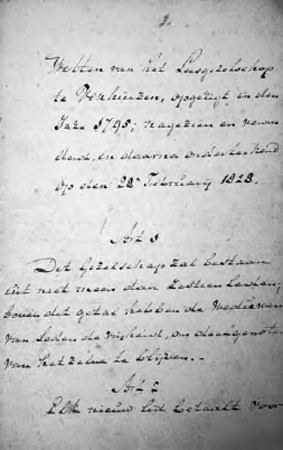 Wetten van het Leesgezelschap
te Norhuizen, opgerigt in den
Jare 1795; nagezien en veran
derd, en daarna onderteekend
op den 22e Februarij 1823.
Art 1
Dit Gezelschap zal bestaan
uit niet meer dan zestien Leden,
boven dit getal hebben de Weduwen
van Leden de vrijheid, om deelgenoten
van hetzelve te blijven.
Art 2
Elk nieuw lid betaalt voor